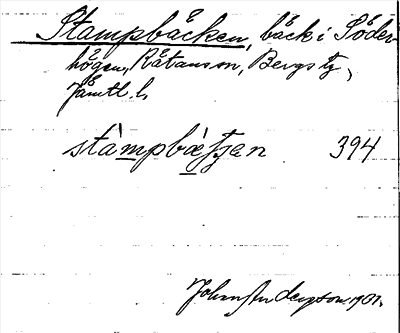 Stampbäcken, bäck i Söder-
högen, Rätanssn, Bergs tg,
Jämtl. l.
stàmpbæʃʃan 394
John Anderson 1901.